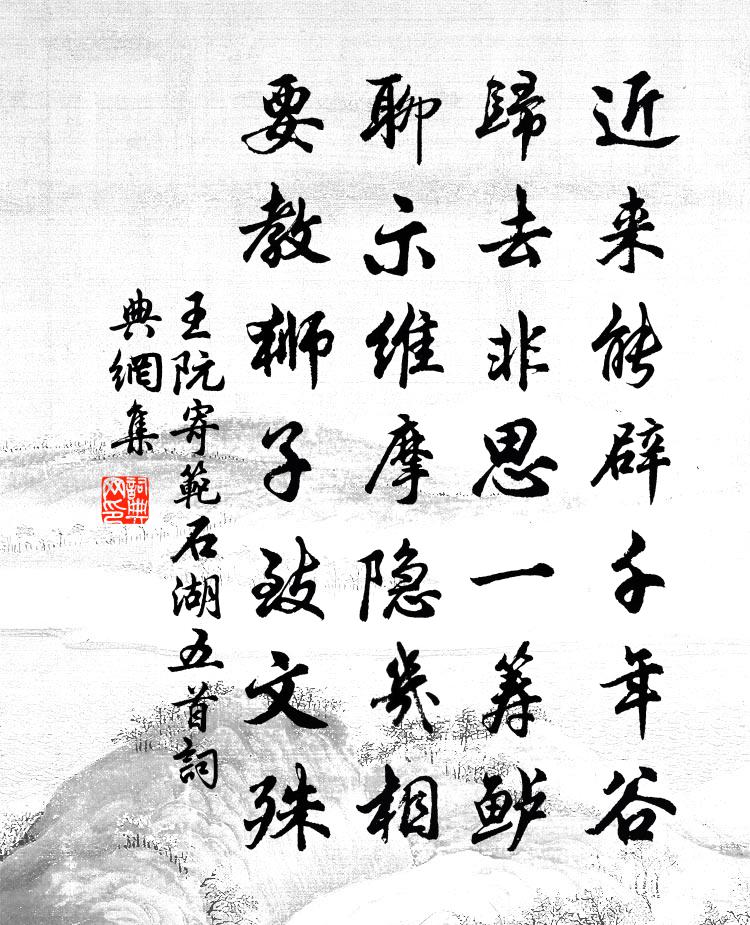 近来能辟千年谷
歸去非思一箸鲈
聊示维摩隐几相
要教狮子致文殊
王阮寄範石湖五首詞
典網集
詞典
网印